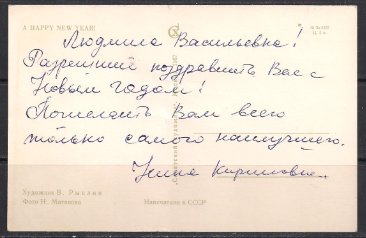 A HAPPY NEW YEAR!
Людмила Васильевна!
Разрешите поздравить Вас с
Новым годом!
Пожелать Вам всего
только самого наилучшего.
Художник В. Рыклин
Фото Н. Матанова
Напечатано в СССР